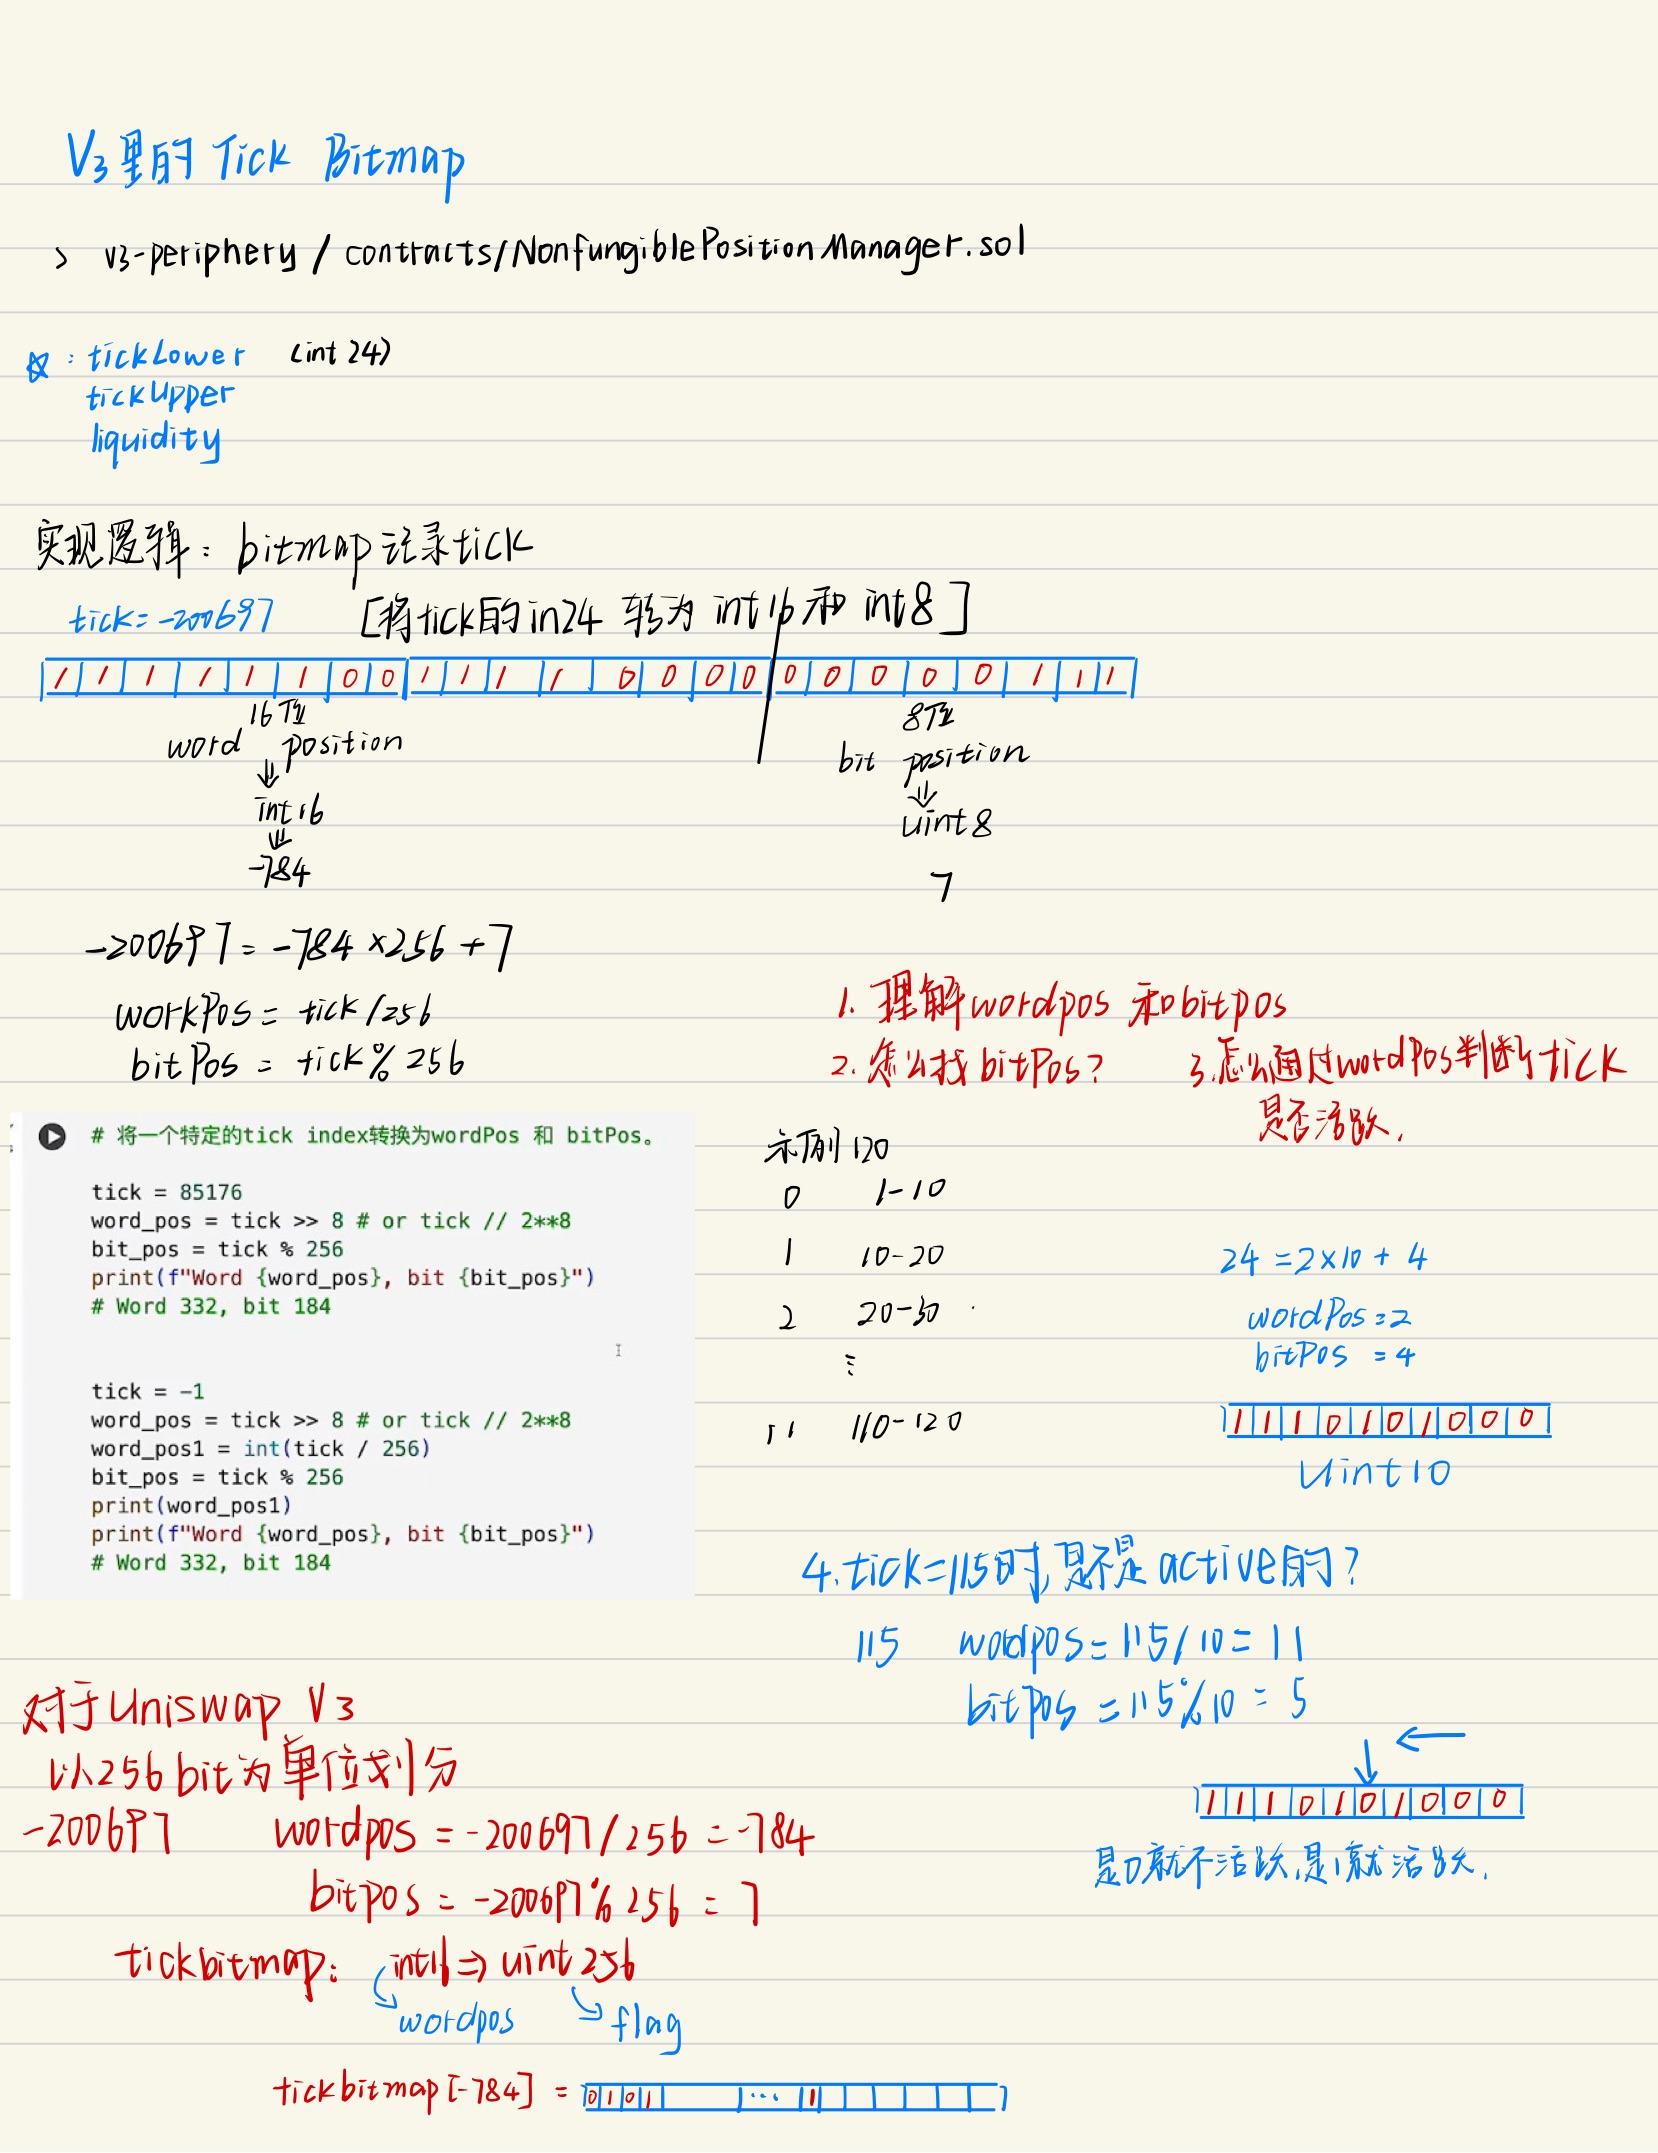 V3里的 Tick Bitmap
> v3-periphery / contracts/NonfungiblePositionManager.sol
☆ : tickLower (int 24)
tickUpper
liquidity
实现逻辑: bitmap记录tick
tick=-200697 [将tick的in24 转为 int16 和 int8]
1 1 1 1 1 1 0 0 1 1 1 1 0 0 0 0 0 0 0 0 0 1 1 1
16位 8位
word position
bit position
⇓ ⇓
int16 uint8
⇓
-784 7
-200697 = -784 ×256 +7
workPos = tick /256
bitPos = tick % 256
1. 理解wordpos 和bitpos
2. 怎么找 bitPos?
3. 怎么通过wordPos判断tick
是否活跃.
# 将一个特定的tick index转换为wordPos 和 bitPos。
tick = 85176
word_pos = tick >> 8 # or tick // 2**8
bit_pos = tick % 256
print(f"Word {word_pos}, bit {bit_pos}")
# Word 332, bit 184
tick = -1
word_pos = tick >> 8 # or tick // 2**8
word_pos1 = int(tick / 256)
bit_pos = tick % 256
print(word_pos1)
print(f"Word {word_pos}, bit {bit_pos}")
# Word 332, bit 184
示例 120
0 1-10
1 10-20
2 20-30
⋮
11 110-120
24 = 2×10 + 4
wordPos=2
bitPos = 4
1 1 1 0 1 0 1 0 0 0
Uint10
4. tick=115时,是不是active的?
115 wordpos = 115/10 = 11
bitpos = 115%10 = 5
↓ ←
1 1 1 0 1 0 1 0 0 0
是0就不活跃,是1就活跃.
对于Uniswap V3
以256bit为单位划分
-200697 wordpos = -200697/256 = -784
bitpos = -200697%256 = 7
tickbitmap: int16 ⇒ uint256
wordpos flag
tickbitmap[-784] = 0 1 0 1 ... 1